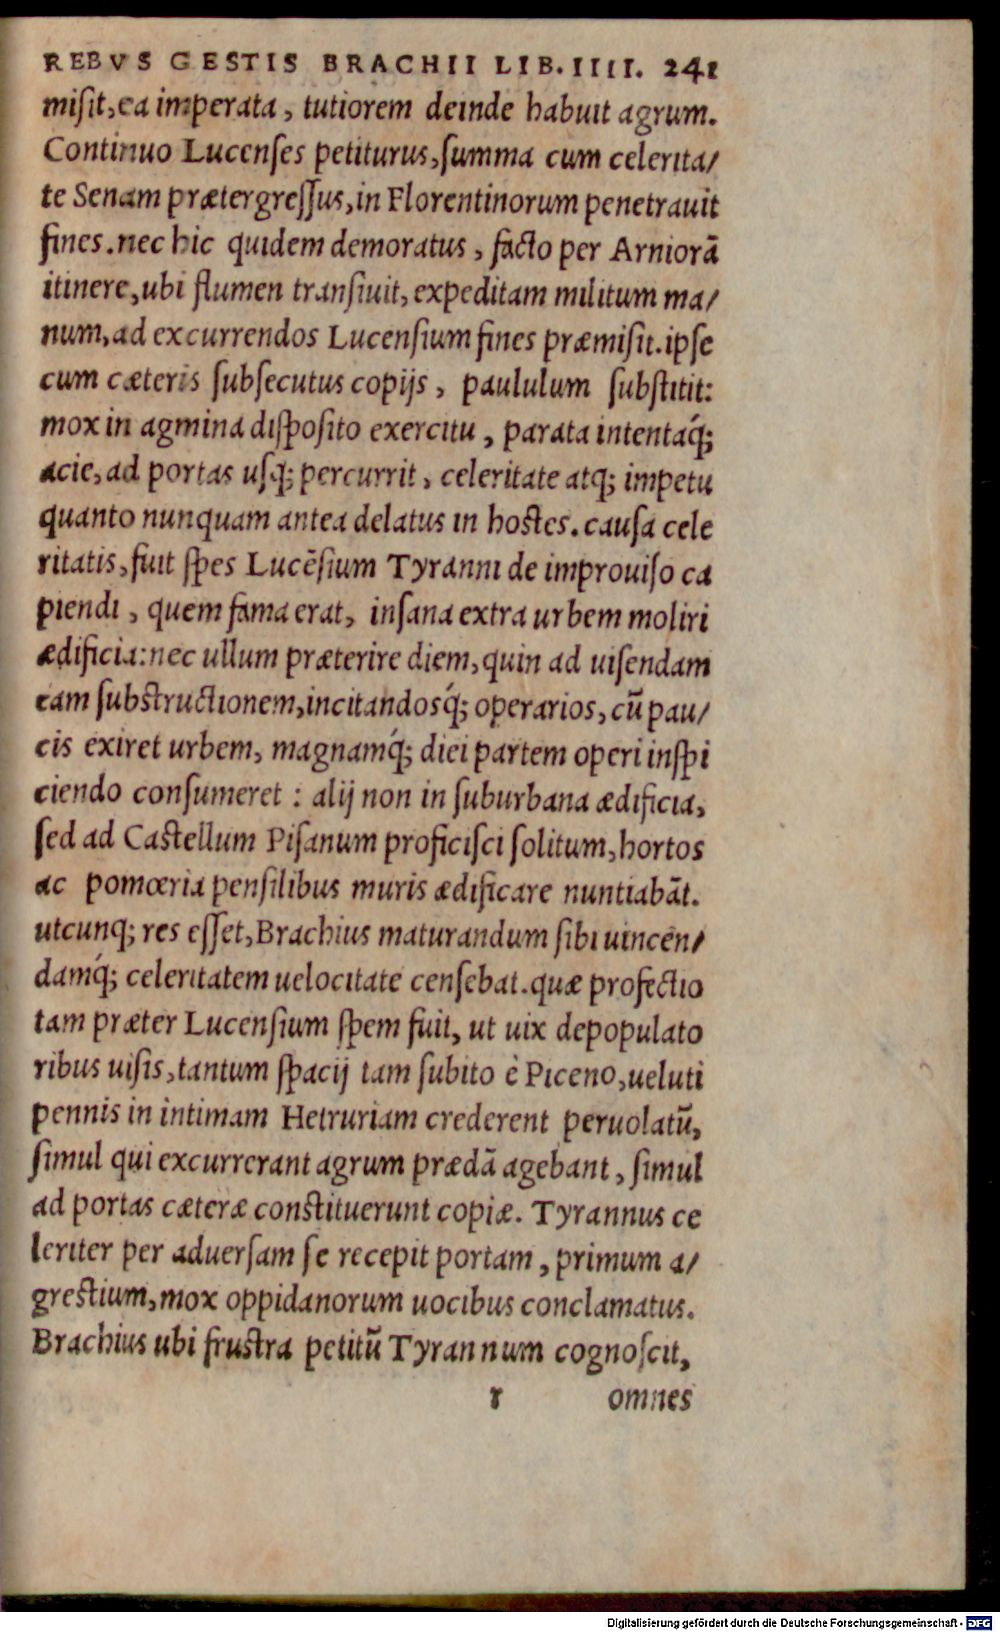 REBVS GESTIS BRACHII LIB. IIII. 241
misit, ea imperata, tutiorem deinde habuit agrum.
Continuo Lucenses petiturus, summa cum celerita/
te Senam prætergressus, in Florentinorum penetrauit
fines. nec hic quidem demoratus, facto per Arniorā
itinere, ubi flumen transiuit, expeditam militum ma/
num, ad excurrendos Lucensium fines præmisit. ipse
cum cæteris subsecutus copijs, paululum substitit:
mox in agmina disposito exercitu, parata intentaq́;
acie, ad portas usq; percurrit, celeritate atq; impetu
quanto nunquam antea delatus in hostes. causa cele
ritatis, fuit spes Lucēsium Tyranni de improuiso ca
piendi, quem fama erat, insana extra urbem moliri
ædificia: nec ullum præterire diem, quin ad uisendam
eam substructionem, incitandosq́; operarios, cū pau/
cis exiret urbem, magnamq́; diei partem operi inspi
ciendo consumeret : alij non in suburbana ædificia,
sed ad Castellum Pisanum proficisci solitum, hortos
ac pomœria pensilibus muris ædificare nuntiabāt.
utcunq; res esset, Brachius maturandum sibi uincen/
damq́; celeritatem uelocitate censebat. quæ profectio
tam præter Lucensium spem fuit, ut uix depopulato
ribus uisis, tantum spacij tam subito è Piceno, ueluti
pennis in intimam Hetruriam crederent peruolatū,
simul qui excurrerant agrum prædā agebant, simul
ad portas cæteræ constituerunt copiæ. Tyrannus ce
leriter per aduersam se recepit portam, primum a/
grestium, mox oppidanorum uocibus conclamatus.
Brachius ubi frustra petitū Tyrannum cognoscit,
r omnes
Digitalisierung gefördert durch die Deutsche Forschungsgemeinschaft - DFG